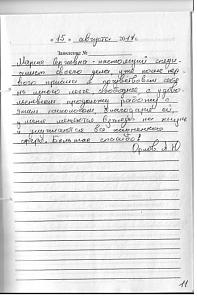 « 15 » августа 2019 г.
Заявление №
Марина Сергеевна - настоящий специ-
алист своего дела, уже после пер-
вого приема я почувствовал себя
на много легче, свободнее, с удово-
льствием продолжу работу с
этим психологом. Благодаря ей
у меня меняются взгляды на жизнь
и улучшаются все
сферы. Большое спасибо!
Орлов А Ю
11